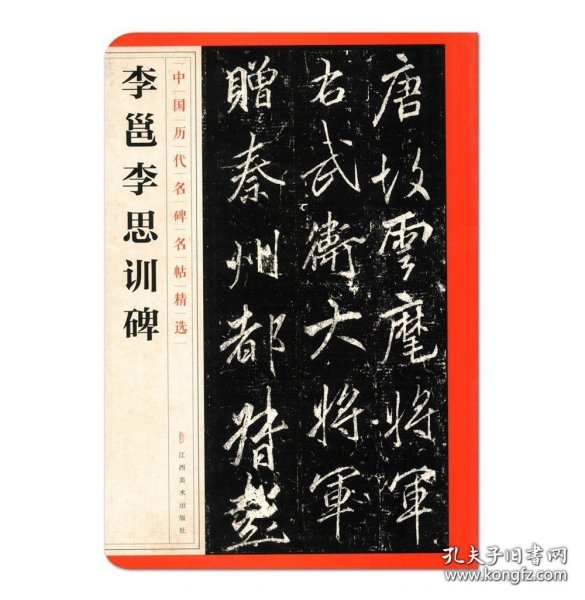 李邕李思训碑
中国历代名碑名帖精选
江西美术出版社
唐故雲麾將軍
右武衛大將軍
贈秦州都督
孔夫子旧书网
www.kongfz.com